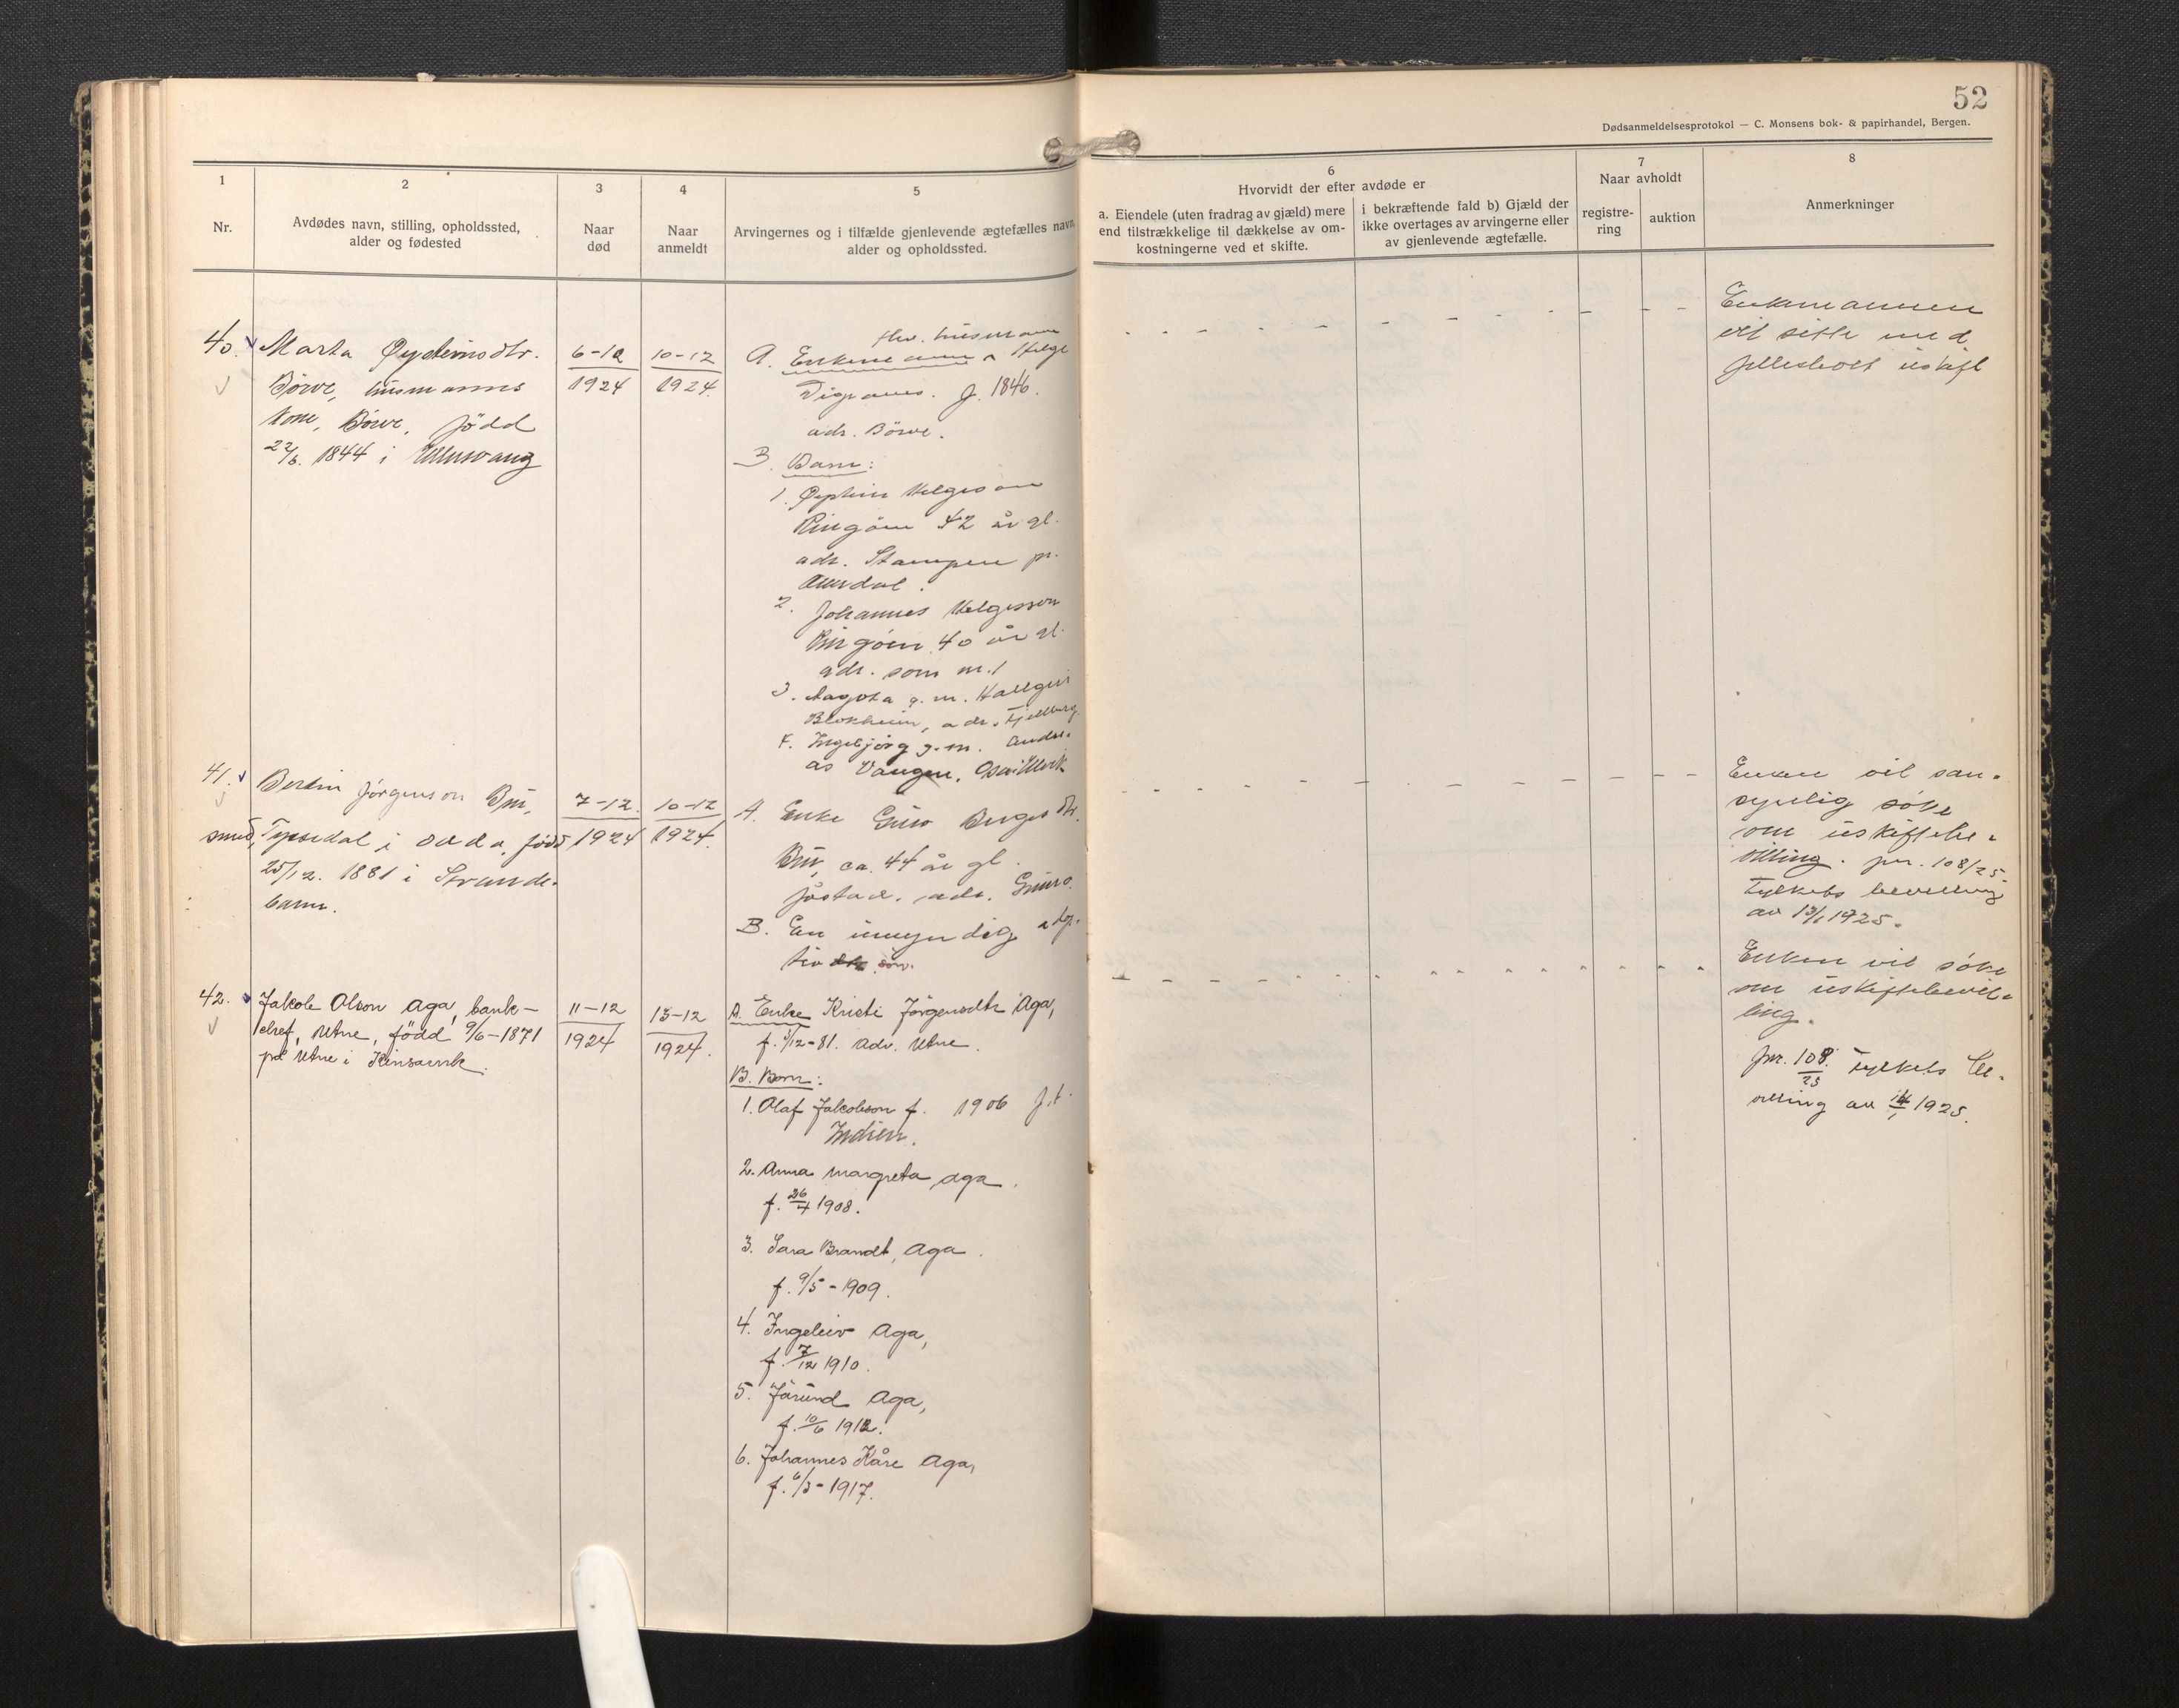 52
Dødsanmeldelsesprotokol — C. Monsens bok- & papirhandel, Bergen.
1
Nr.
2
Avdødes navn, stilling, opholdssted,
alder og fødested
3
Naar
død
4
Naar
anmeldt
5
Arvingernes og i tilfælde gjenlevende ægtefælles navn,
alder og opholdssted.
6
Hvorvidt der efter avdøde er
a. Eiendele (uten fradrag av gjæld) mere
end tilstrækkelige til dækkelse av om-
kostningerne ved et skifte.
i bekræftende fald b) Gjæld der
ikke overtages av arvingerne eller
av gjenlevende ægtefælle.
7
Naar avholdt
registre-
ring
auktion
8
Anmerkninger
40.
Marta Øysteinsdtr.
Börve, husmanns
kone, Börve, född
22/6. 1844 i Ullensvang
1924
10-12
1924.
fhv. husmann
A. Enkemann Helge
Digranes. f. 1846.
adr. Börve.
B. Barn:
1. Øystein Helgeson
Ringöen 42 år gl.
adr. Stampen pr.
2. Johannes Helgesson
Ringöen 40 år gl.
adr. som nr. 1
3. Aagota g. m. Hallgeir
4. Ingebjörg g. m. Andre-
as Vangen,
Enkemannen
vil sitte med
felleboet uskift
41.
Bertin Jörgenson Bu,
smed, Tyssedal i Odda, född
25/12. 1881 i Strande-
barm.
7-12.
1924
10-12
1924.
A. Enke Guro Bergesdtr.
Bu, ca. 44 år gl.
B. En umyndig adop-
tiv sön.
Enken vil san-
synlig söke
om uskiftebe-
villing. jnr. 108/25.
Fylkets bevilling
av 13/1 1925.
42.
Jakob Olson Aga, bank-
chef, Utne, född 9/6-1871
på Utne i Kinsarvik.
11-12
1924
13-12
1924.
A. Enke Kristi Jörgensdtr Aga,
adr. Utne.
B. Born:
1. Olaf Jakobson f. 1906 f. t.
Indien.
2. Anna Margreta Aga.
f. 26/4 1908.
3. Sara Brandt, Aga.
f. 9/5-1909.
4. Ingeleiv Aga,
f. 7/12 1910.
5. Jörund Aga,
f. 10/6 1912.
6. Johannes Kåre Aga,
f. 6/3-1917.
Enken vil söke
om uskiftebevil-
ling.
jnr. 108/25 Fylkets be-
villing av 14/1 1925.